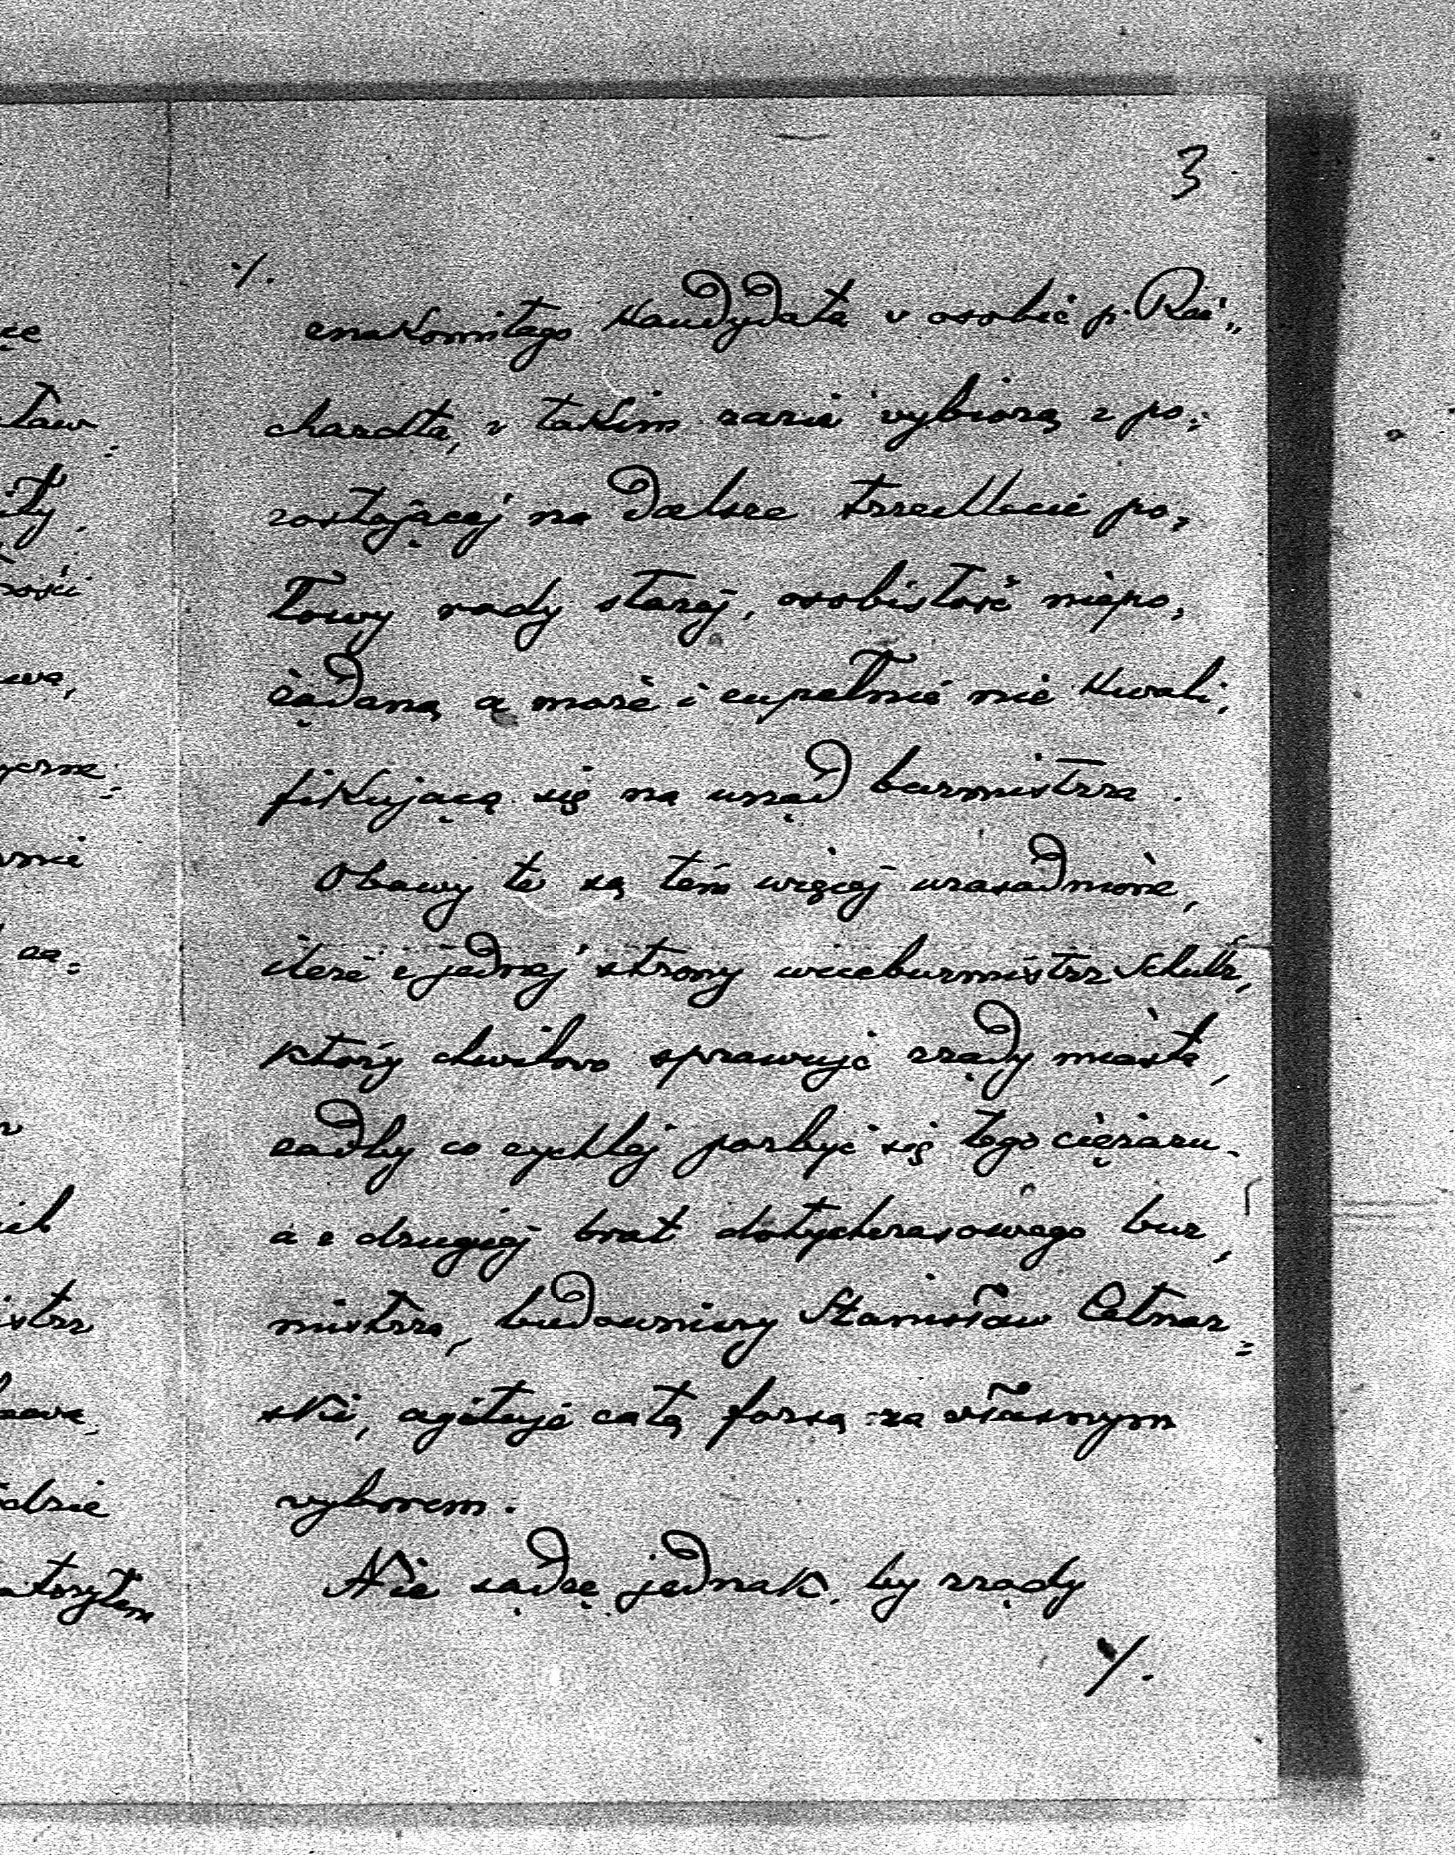 3
./.
znakomitego kandydata w osobie p. Rai„
chardta, w takim razie wybiorą z po-
zostającej na dalsze trzechlecie po-
łowy rady starej, osobistość niepo-
żądaną a może i zupełnie nie kwali-
fikującą się na urząd burmistrza.
Obawy te są tém więcej uzasadnione,
ileże z jednej strony wiceburmistrz Schultz,
który chwilowo sprawuje rządy miasta,
radby co rychlej pozbyć się tego ciężaru
a z drugiej brat dotychczasowego bur-
mistrza, budowniczy Stanisław Cetnar=
ski, agituje całą forsą za własnym
wyborem.
Nie sądzę jednak, by rządy
./.